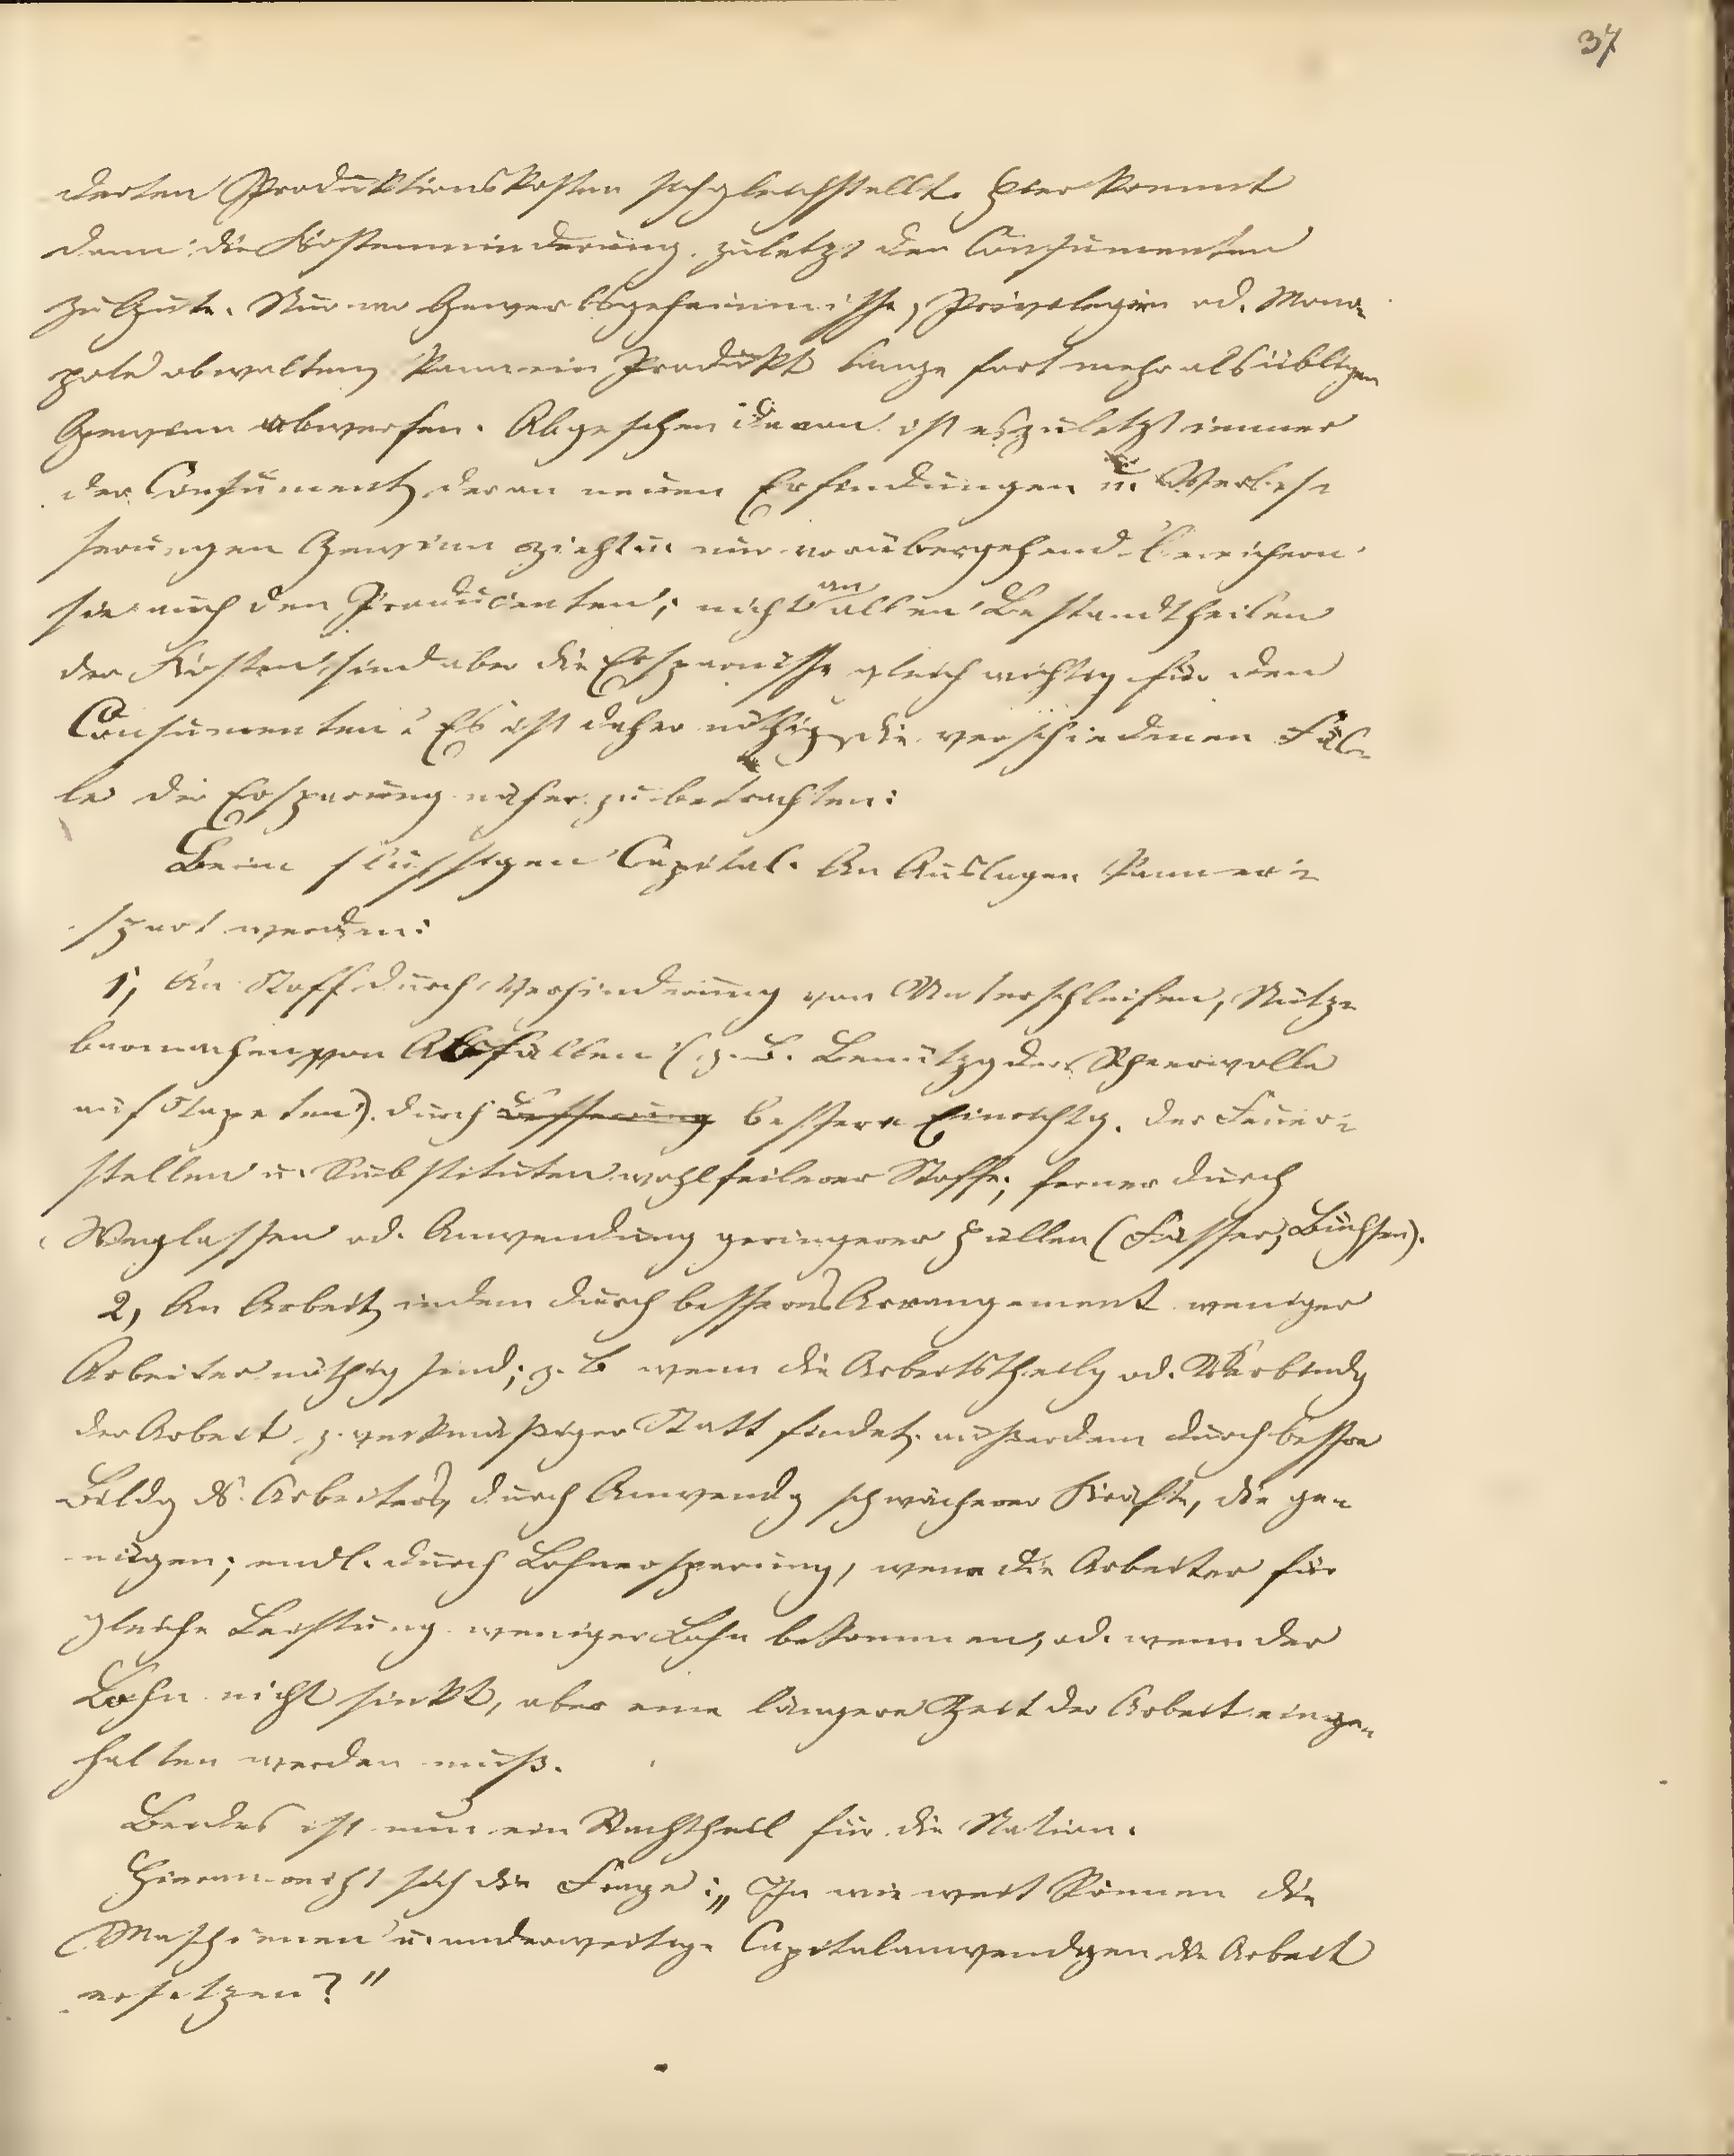 37
derten Produktionskosten sich gleichstellt. Hier kommt
dann die Kostenminderung zuletzt den Consumenten
zu Gute. Nur wo Gewerbsgeheimnisse, Privilegien od. Mono-
pole obwalten, kann ein Produkt lange fort mehr als üblichen
Gewinn abwerfen. Abgesehen davon ist es zuletzt immer
der Consument, der an neuen Erfindungen u. Verbes-
serungen Gewinn zieht u. nur vorübergehend bereichern
sie auch den Producenten; nicht an allen Bestandtheilen
der Kosten sind aber die Ersparnisse gleich wichtig für den
Consumenten. Es ist daher nöthig, die verschiedenen Fäl-
le der Ersparung näher zu betrachten:
Beim flüssigen Capital. An Auslagen kann er-
spart werden:
1, An Stoff durch Verhinderung von Unterschleifen, Nutz-
barmachen von Abfällen (z. B. Benützg der Scheerwolle
auf Tapeten). durch Besserung bessere Einrichtg. der Feuer-
stellen u. Substituten wohlfeilerer Stoffe; ferner durch
Weglassen od. Anwendung geringerer Hüllen (Fässer, Büchsen).
2, An Arbeit, indem durch besseres Arrangement weniger
Arbeiter nöthig sind; z. B wenn die Arbeitstheilg od. Verbindg
der Arbeit zweckmäßiger Statt findet. außerdem durch bessre
Bildg ds. Arbeiters, durch Anwendg schwächerer Kräfte, die ge-
nügen; endl. durch Lohnersparung, wenn die Arbeiter für
gleiche Leistung weniger Lohn bekommen, od. wenn der
Lohn nicht sinkt, aber eine längere Zeit der Arbeit einge-
halten werden muß.
Beides ist nun ein Nachtheil für die Nation.
Hieran reiht sich die Frage: „In wie weit können die
Maschienen u. anderweitige Capitalanwendgen die Arbeit
ersetzen?"